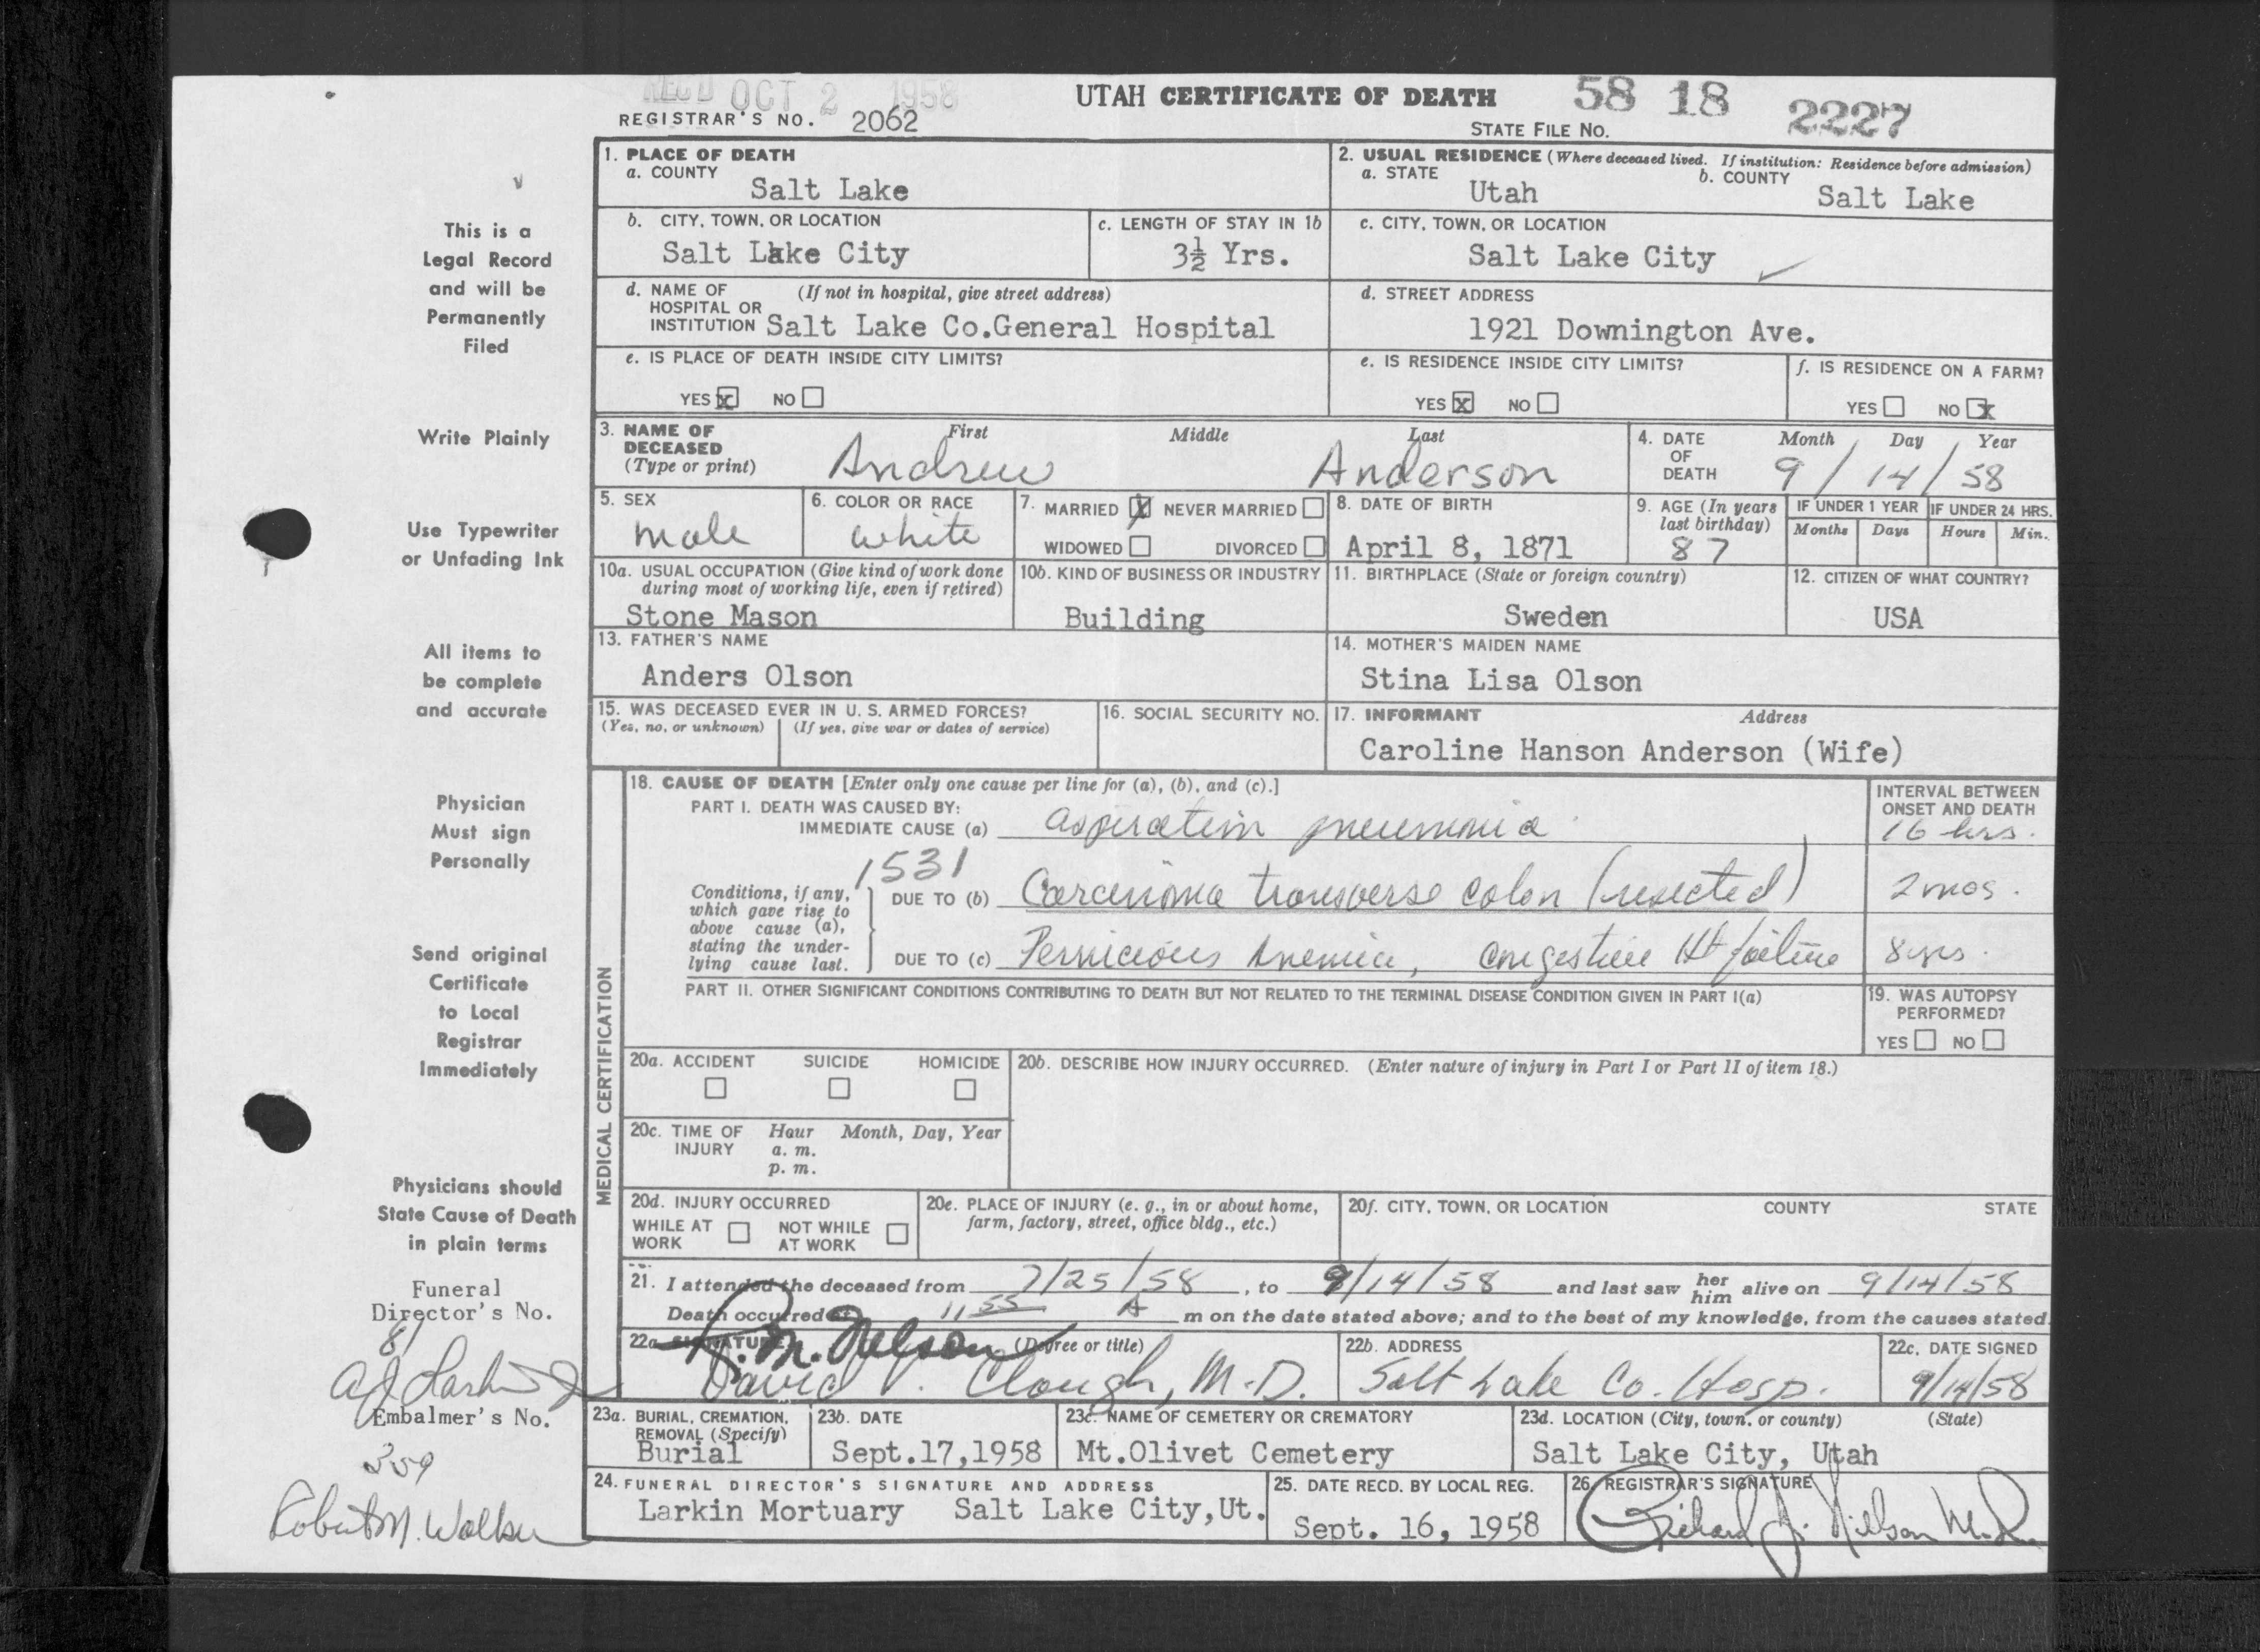 REC'D OCT 2 1958
UTAH CERTIFICATE OF DEATH
58 18 2227
REGISTRAR'S NO. 2062
STATE FILE NO.
1. PLACE OF DEATH
a. COUNTY
Salt Lake
2. USUAL RESIDENCE (Where deceased lived. If institution: Residence before admission)
a. STATE Utah
b. COUNTY Salt Lake
b. CITY, TOWN, OR LOCATION
Salt Lake City
c. LENGTH OF STAY IN 1b
3½ Yrs.
c. CITY, TOWN, OR LOCATION
Salt Lake City
d. NAME OF HOSPITAL OR INSTITUTION (If not in hospital, give street address)
Salt Lake Co.General Hospital
d. STREET ADDRESS
1921 Downington Ave.
e. IS PLACE OF DEATH INSIDE CITY LIMITS?
YES X NO
e. IS RESIDENCE INSIDE CITY LIMITS?
YES X NO
f. IS RESIDENCE ON A FARM?
YES NO X
3. NAME OF DECEASED (Type or print)
First Middle Last
Andrew Anderson
4. DATE OF DEATH
Month Day Year
9/14/58
5. SEX
male
6. COLOR OR RACE
white
7. MARRIED X NEVER MARRIED
WIDOWED DIVORCED
8. DATE OF BIRTH
April 8, 1871
9. AGE (In years last birthday)
87
IF UNDER 1 YEAR
Months Days
IF UNDER 24 HRS.
Hours Min.
10a. USUAL OCCUPATION (Give kind of work done during most of working life, even if retired)
Stone Mason
10b. KIND OF BUSINESS OR INDUSTRY
Building
11. BIRTHPLACE (State or foreign country)
Sweden
12. CITIZEN OF WHAT COUNTRY?
USA
13. FATHER'S NAME
Anders Olson
14. MOTHER'S MAIDEN NAME
Stina Lisa Olson
15. WAS DECEASED EVER IN U. S. ARMED FORCES?
(Yes, no, or unknown) (If yes, give war or dates of service)
16. SOCIAL SECURITY NO.
17. INFORMANT Address
Caroline Hanson Anderson (Wife)
MEDICAL CERTIFICATION
18. CAUSE OF DEATH [Enter only one cause per line for (a), (b), and (c).]
INTERVAL BETWEEN ONSET AND DEATH
PART I. DEATH WAS CAUSED BY:
IMMEDIATE CAUSE (a) aspiration pneumonia 16 hrs.
1531
Conditions, if any, which gave rise to above cause (a), stating the underlying cause last.
DUE TO (b) Carcinoma transverse colon (resected) 2 mos.
DUE TO (c) Pernicious Anemia, congestive Ht failure 8 yrs.
PART II. OTHER SIGNIFICANT CONDITIONS CONTRIBUTING TO DEATH BUT NOT RELATED TO THE TERMINAL DISEASE CONDITION GIVEN IN PART I(a)
19. WAS AUTOPSY PERFORMED?
YES NO
20a. ACCIDENT SUICIDE HOMICIDE
20b. DESCRIBE HOW INJURY OCCURRED. (Enter nature of injury in Part I or Part II of item 18.)
20c. TIME OF INJURY Hour Month, Day, Year
a. m.
p. m.
20d. INJURY OCCURRED
WHILE AT WORK NOT WHILE AT WORK
20e. PLACE OF INJURY (e. g., in or about home, farm, factory, street, office bldg., etc.)
20f. CITY, TOWN, OR LOCATION COUNTY STATE
21. I attended the deceased from 7/25/58, to 9/14/58 and last saw her him alive on 9/14/58
Death occurred at 11 55 A m on the date stated above; and to the best of my knowledge, from the causes stated.
22a. SIGNATURE (Degree or title)
R. M. Nelson
David V. Clough, M.D.
22b. ADDRESS
Salt Lake Co. Hosp.
22c. DATE SIGNED
9/14/58
23a. BURIAL, CREMATION, REMOVAL (Specify)
Burial
23b. DATE
Sept.17,1958
23c. NAME OF CEMETERY OR CREMATORY
Mt.Olivet Cemetery
23d. LOCATION (City, town, or county) (State)
Salt Lake City, Utah
24. FUNERAL DIRECTOR'S SIGNATURE AND ADDRESS
Larkin Mortuary Salt Lake City,Ut.
25. DATE RECD. BY LOCAL REG.
Sept. 16, 1958
26. REGISTRAR'S SIGNATURE
Richard J. Nielson M.D.
This is a
Legal Record
and will be
Permanently
Filed
Write Plainly
Use Typewriter
or Unfading Ink
All items to
be complete
and accurate
Physician
Must sign
Personally
Send original
Certificate
to Local
Registrar
Immediately
Physicians should
State Cause of Death
in plain terms
Funeral
Director's No.
81
Embalmer's No.
359
Robert M. Walker